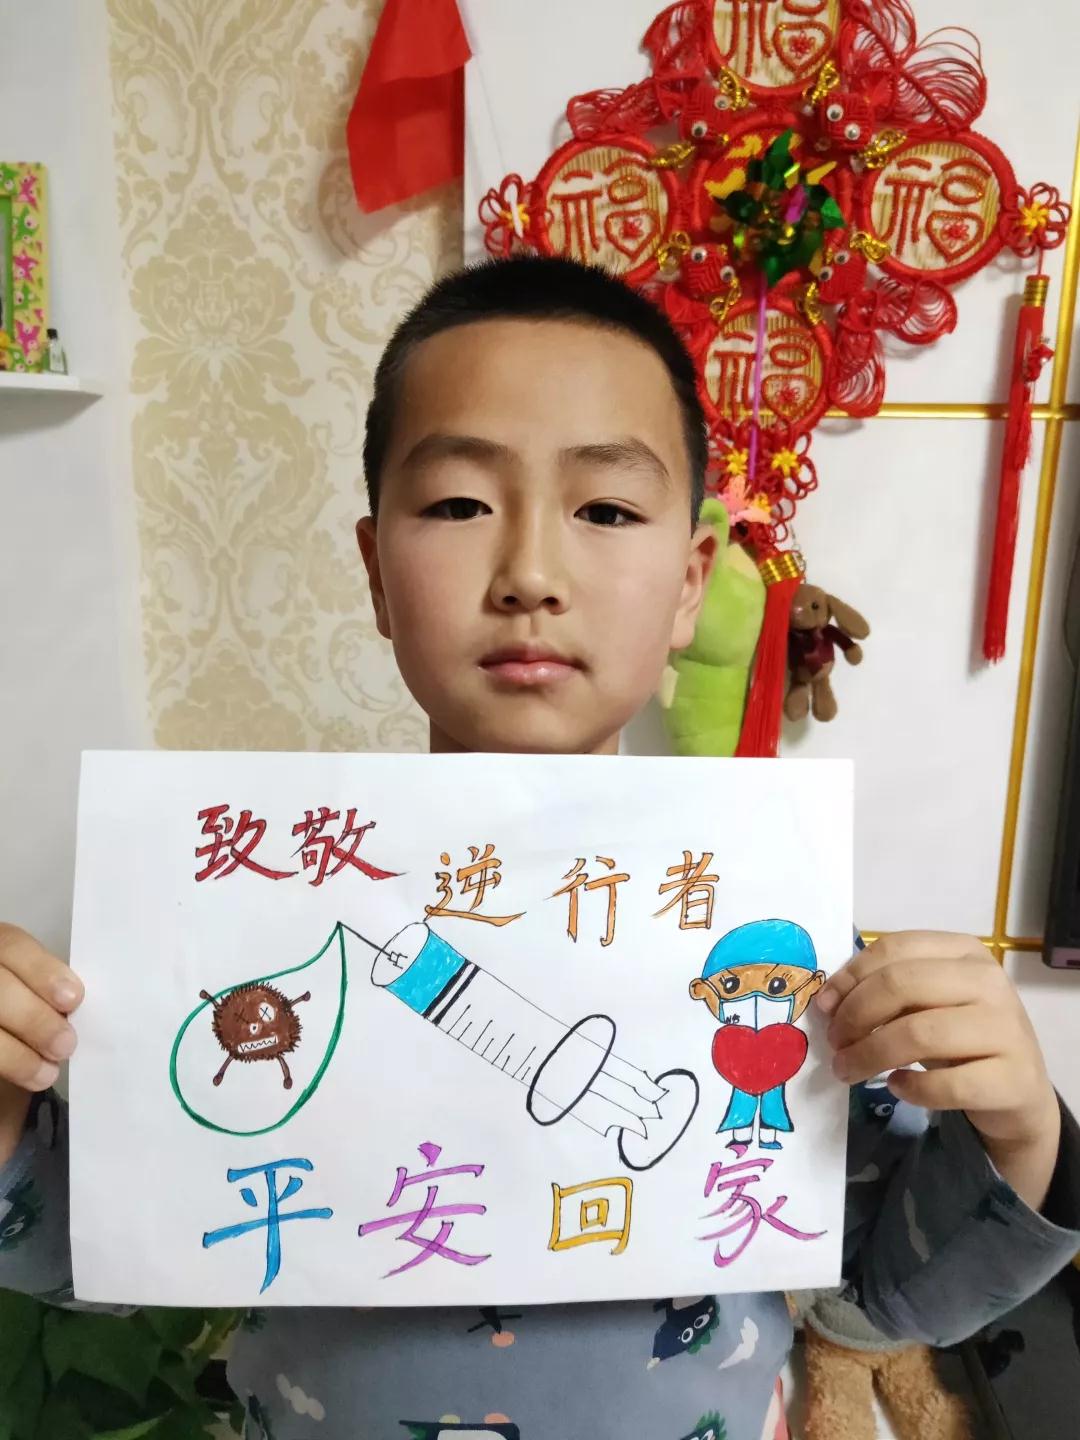 福
福
福
福
致敬
逆行者
N95
平安回家